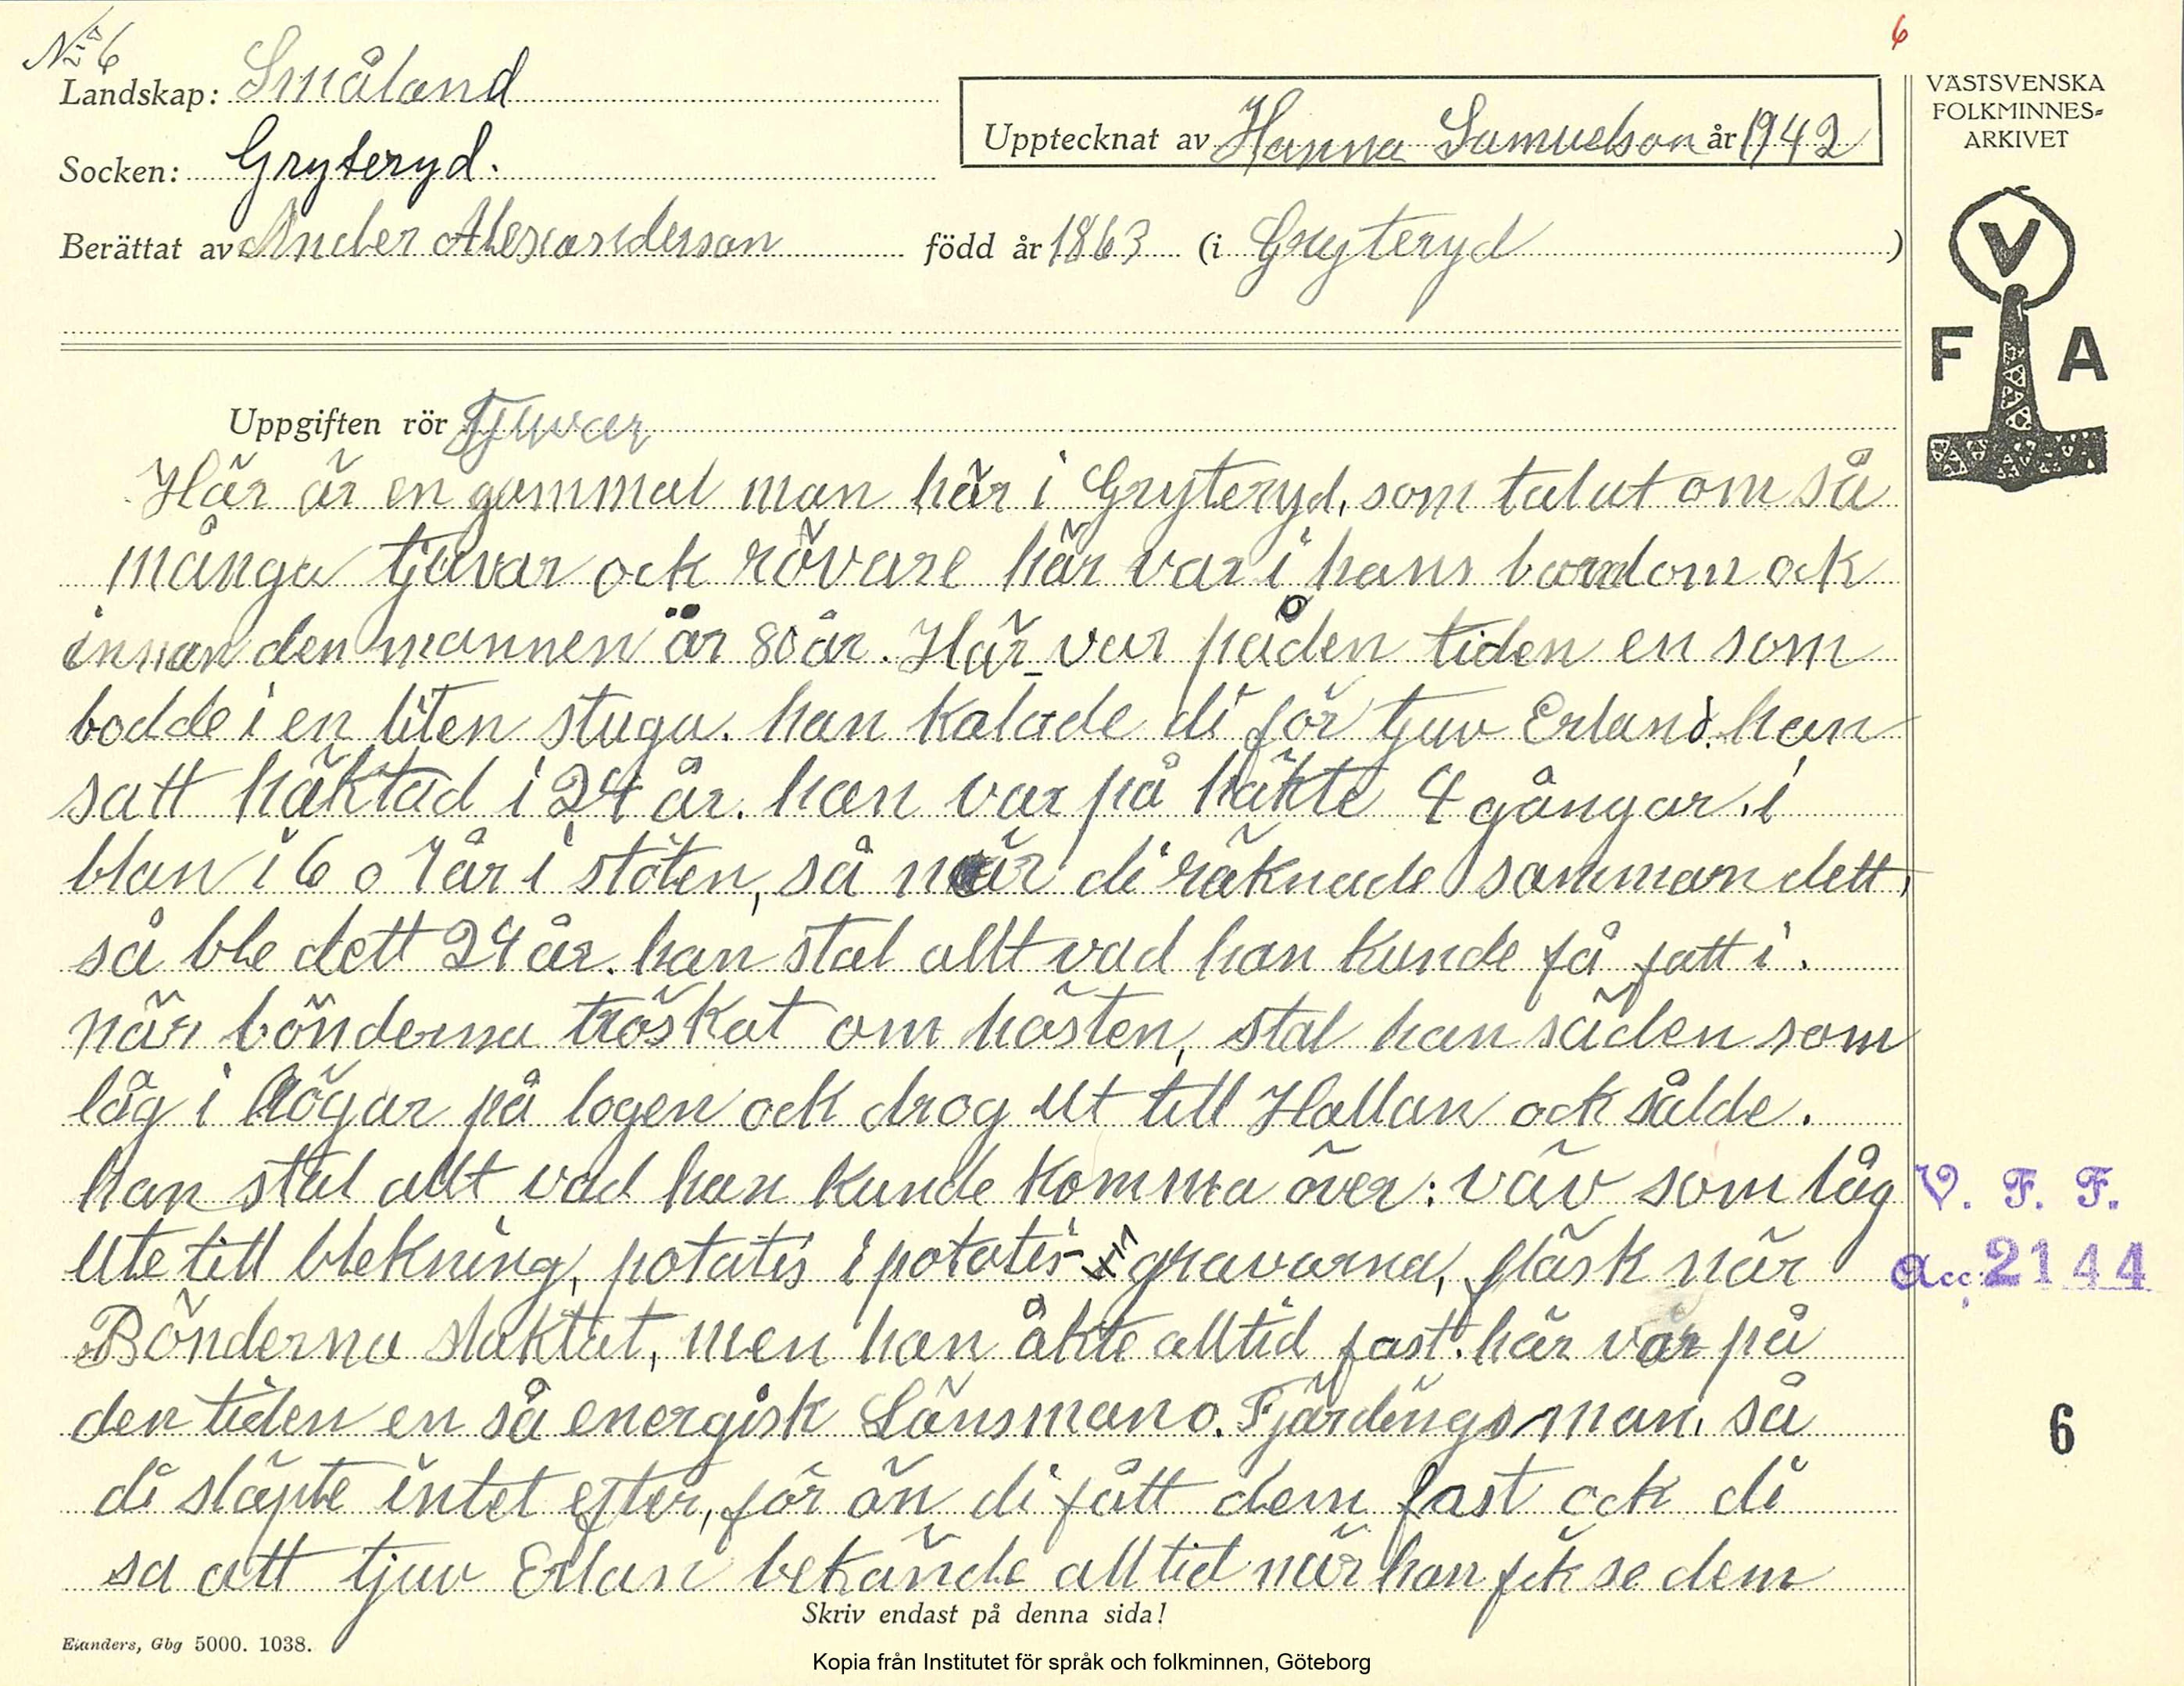 No 6
6
Landskap: Småland
Upptecknat av Hanna Samuelson år 1942
VÄSTSVENSKA
FOLKMINNES=
ARKIVET
Socken: Gryteryd.
Berättat av Ander Alexanderson född år 1863 (i Gryteryd)
V
F A
Uppgiften rör Tjuvar
Här är en gammal man här i Gryteryd, som talat om så
många tjuvar ock rövare här var i hans barndom ock
innan den mannen är 80 år. Här var på den tiden en som
bodde i en liten stuga. han kalade di för tjuv Erland. han
satt häktad i 24 år. han var på häkte 4 gångar. i
blan i 6 o 7 år i stöten, så när di räknade samman dett,
så ble dett 24 år. han stal allt vad han kunde få fatt i.
när bönderna tröskat om hösten, stal han säden som
låg i högar på logen ock drog ut till Hallan ock sålde.
han stal allt vad han kunde komma över: väv som låg
ute till blekning, potatis i potatis- gravarna, fläsk när
Bönderna slaktat, men han åkte alltid fast. här var på
den tiden en så energisk Länsman o. Fjärdingsman, så
di släpte intet efter, för än di fått dem fast ock di
sa att tjuv Erlan bekände alltid när han fik se dem
V. F. F.
Acc. 2144
6
Skriv endast på denna sida!
Elanders, Gbg 5000. 1038.
Kopia från Institutet för språk och folkminnen, Göteborg